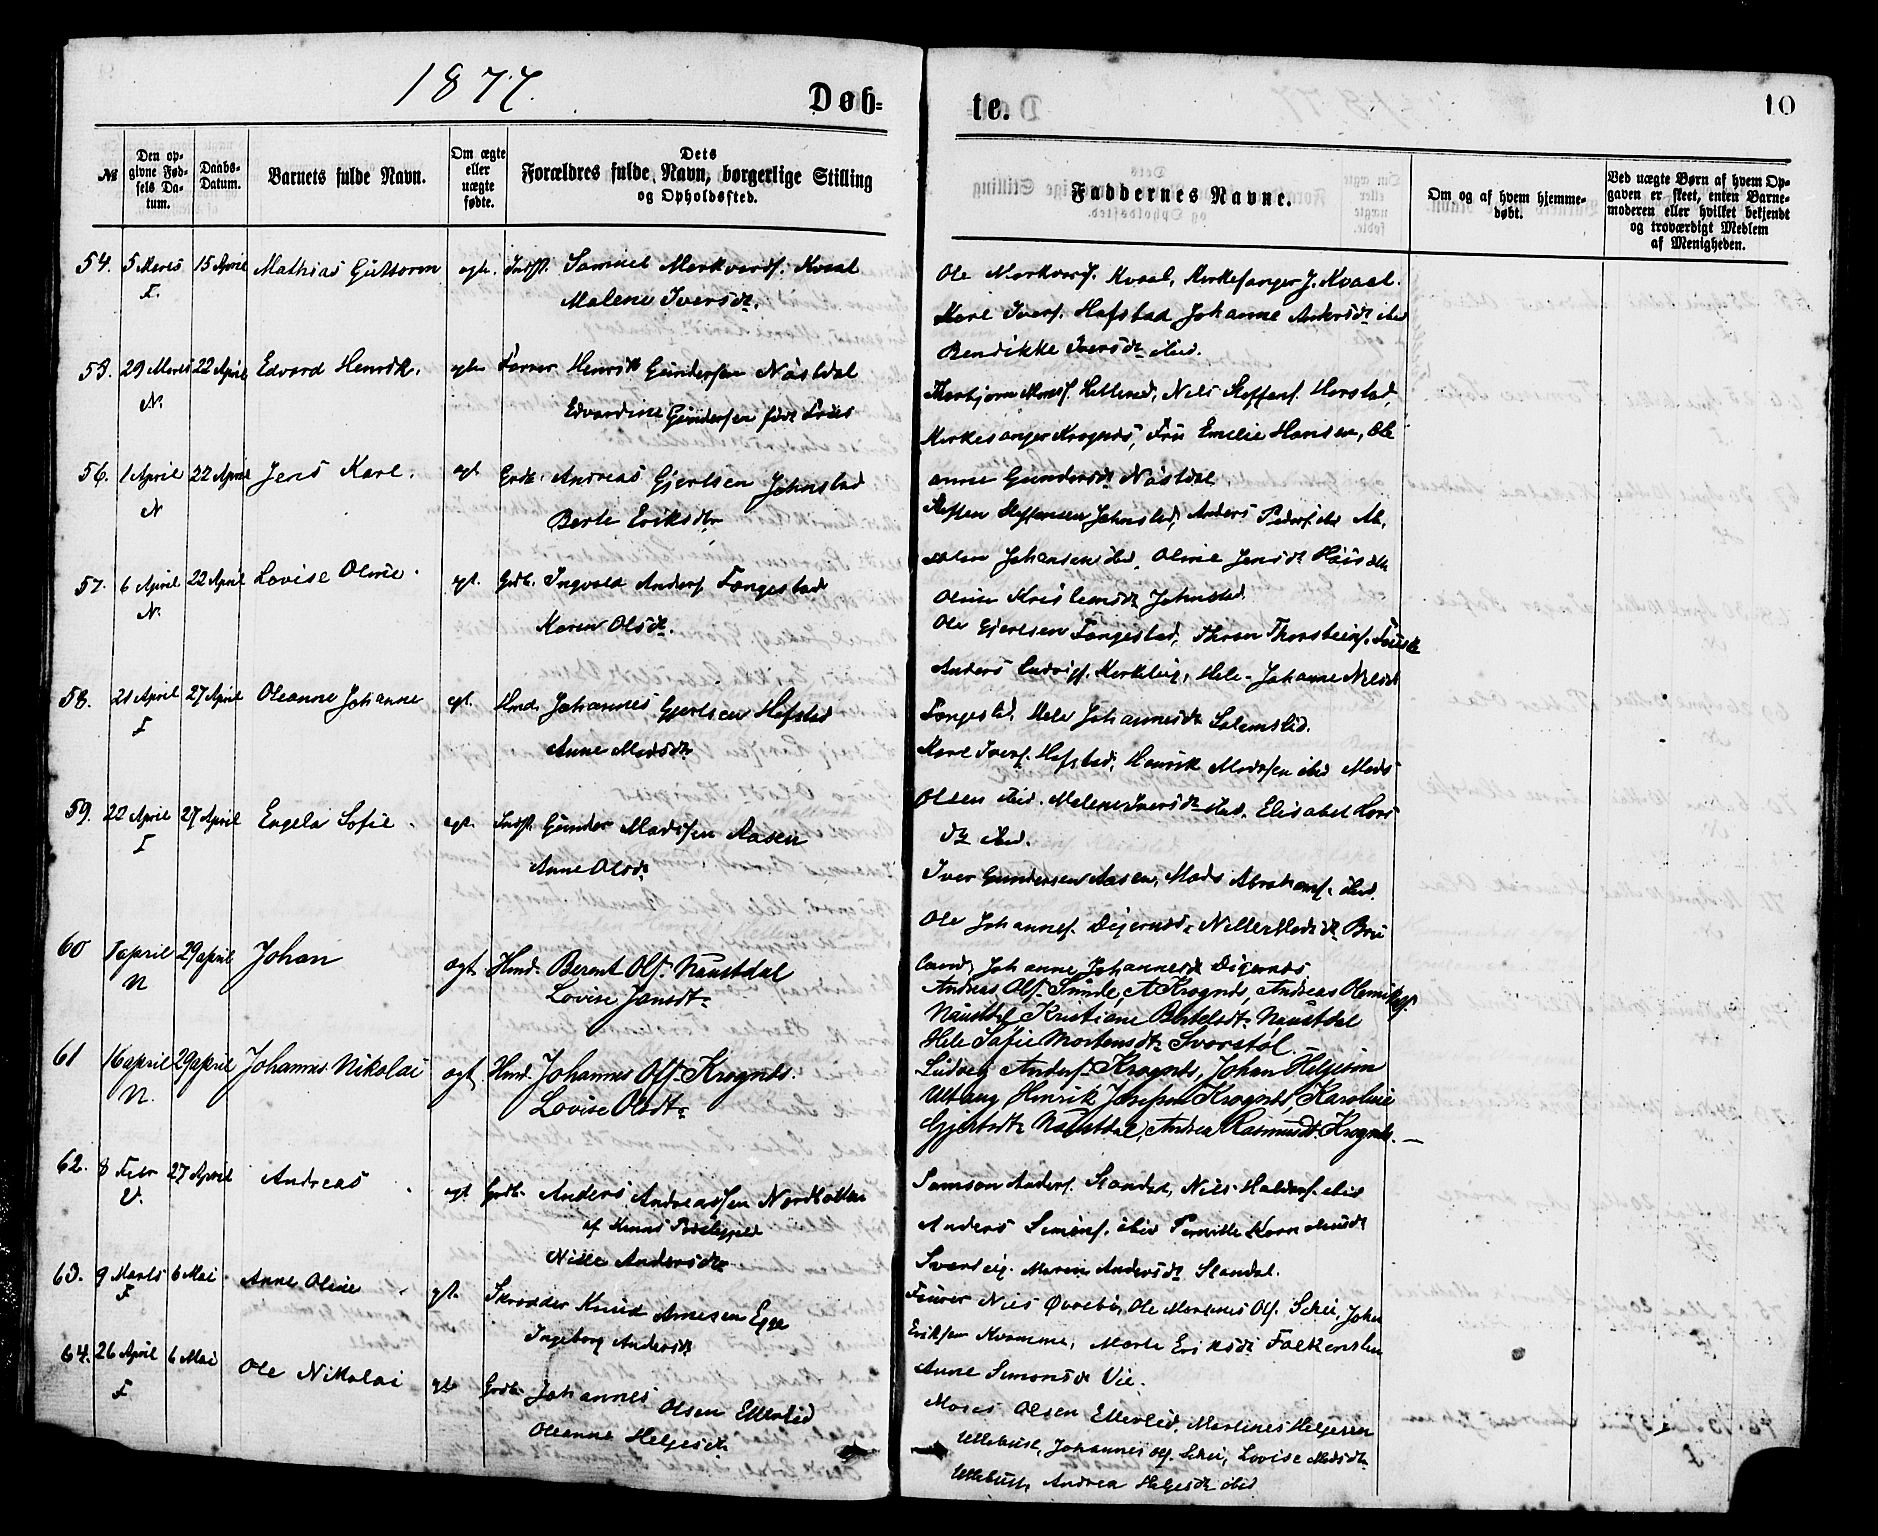 1877.
Døb-
te.
10
№
Den opgivne Fødsels Datum.
Daabs-Datum.
Barnets fulde Navn.
Om ægte eller uægte fødte.
Dets Forældres fulde Navn, borgerlige Stilling og Opholdssted.
Faddernes Navne.
Om og af hvem hjemmedøbt.
Ved uægte Børn af hvem Opgaven er skeet, enten Barnemoderen eller hvilket bekjendt og troværdigt Medlem af Menigheden.
54. 5 Marts 15 April Mathias Guttorm egt. Indst. Samuel Markvards. Kvaal
F. Malene Iversdt.
Ole Markvards. Kvaal, Kirkesanger J. Kvaal.
Karl Ivers. Hafstad Johanne Andersdt ibid
Bendikke Iversdt ibid.
29 Marts 22 April Edvard Henrik. egte Farver Henrik Gundersen Nåstdal
N. Edvardine Gundersen født Friis
Thorbjørn Hetlereid, Nils Steffens. Horstad,
Kirkesanger Krognæs, Fru Emelie Hansen, Ole
anne Gundersdt Nåstdal.
56. 1 April 22 April Jens Karl. egt Grdb. Andreas Gjertsen Jahnstad
N Berte Eriksdtr
Steffen Steffensen Jahnstad, Anders Peders. ibid Ab.
Johansen ibid, Oline Jensdt
Oline Kristensdt Jahnstad.
57. 6 April 22 April Lovise Oline. egt. Grdb. Ingvald Anders. Fangestad
N. Karen Olsdt.
Ole Gjertsen Fangestad, Thorsteins.
Anders Ludvigs. Kirkeleig, Hele-Johanne Nilsdt
Fangestad, Hele Johannesdt
58. 21 April 27 April Oleanne Johanne egt. Hmd. Johannes Gjertsen Hafstad
F Anne Madsdt
Karl Ivers. Hafstad, Henrik Madssen ibid Mads
Olsen ibid. Malene Iversdt ibid. Elisabet Lars
dt ibid.
59. 22 April 27 April Engela Sofie. egt. Indst. Gunder Madssen Aasen
F Anne Olsdt
Iver Gundersen Aasen, Mads Abrahams. ibid.
Ole Johannes. Digernæs, Nille Madsdt Bru
land, Johanne Johannesdt Digernæs
60 april 29 april Johan ægt. Hmd. Berent Ols. Naustdal
N Lovise Jansdt.
Andreas Ols. Sunde, A Krognæs, Andreas Henriks.
Naustdal Kristiane Bertelsdt. Naustdal
Hele Sofie Mortensdt. Svorstøl.
61 16 april 29 april Johannes Nikolai ægt Hmd. Johannes Ols. Krognæs.
N. Lovise Olsdt.
Ludvig Anders. Krognæs, Johan Helgesen
Ullaug Henrik Josefsen Krognæs, Karoline
Gjertsdt. Naustdal, Andrea Rasmusdt. Krognæs.
62. 8 Febr 27 April Andreas egt Grdb. Anders Andreassen Nordbotten
V. af Kinns Præstegjeld
Nille Andersdt
Samson Anders. Standal, Nils ibid
Anders Simons. ibid Pernille Karn
Svorteig. Maren Andersdt Standal.
63. 9 Marts 6 Mai Anne Oline egt. Skrædder Knud Arnesen Egge
F Ingeborg Andersdt
Furer Nils Øvrebø, Ole Martinus Ols. Schei, Johan
Eriksen Kvamme, Marte Eriksdt Falkensten
Anne Simonsdt Vie.
64. 26 April 6 Mai Ole Nikolai egt Grdb. Johannes Olsen Ellerlid
F Oleanne Helgesdt
Moses Olsen Ellerlid, Martines Helgesen
Ullebust, Johannes Ols. Schei, Lovise Madsdt
Ullebust, Andrea Helgesdt ibid